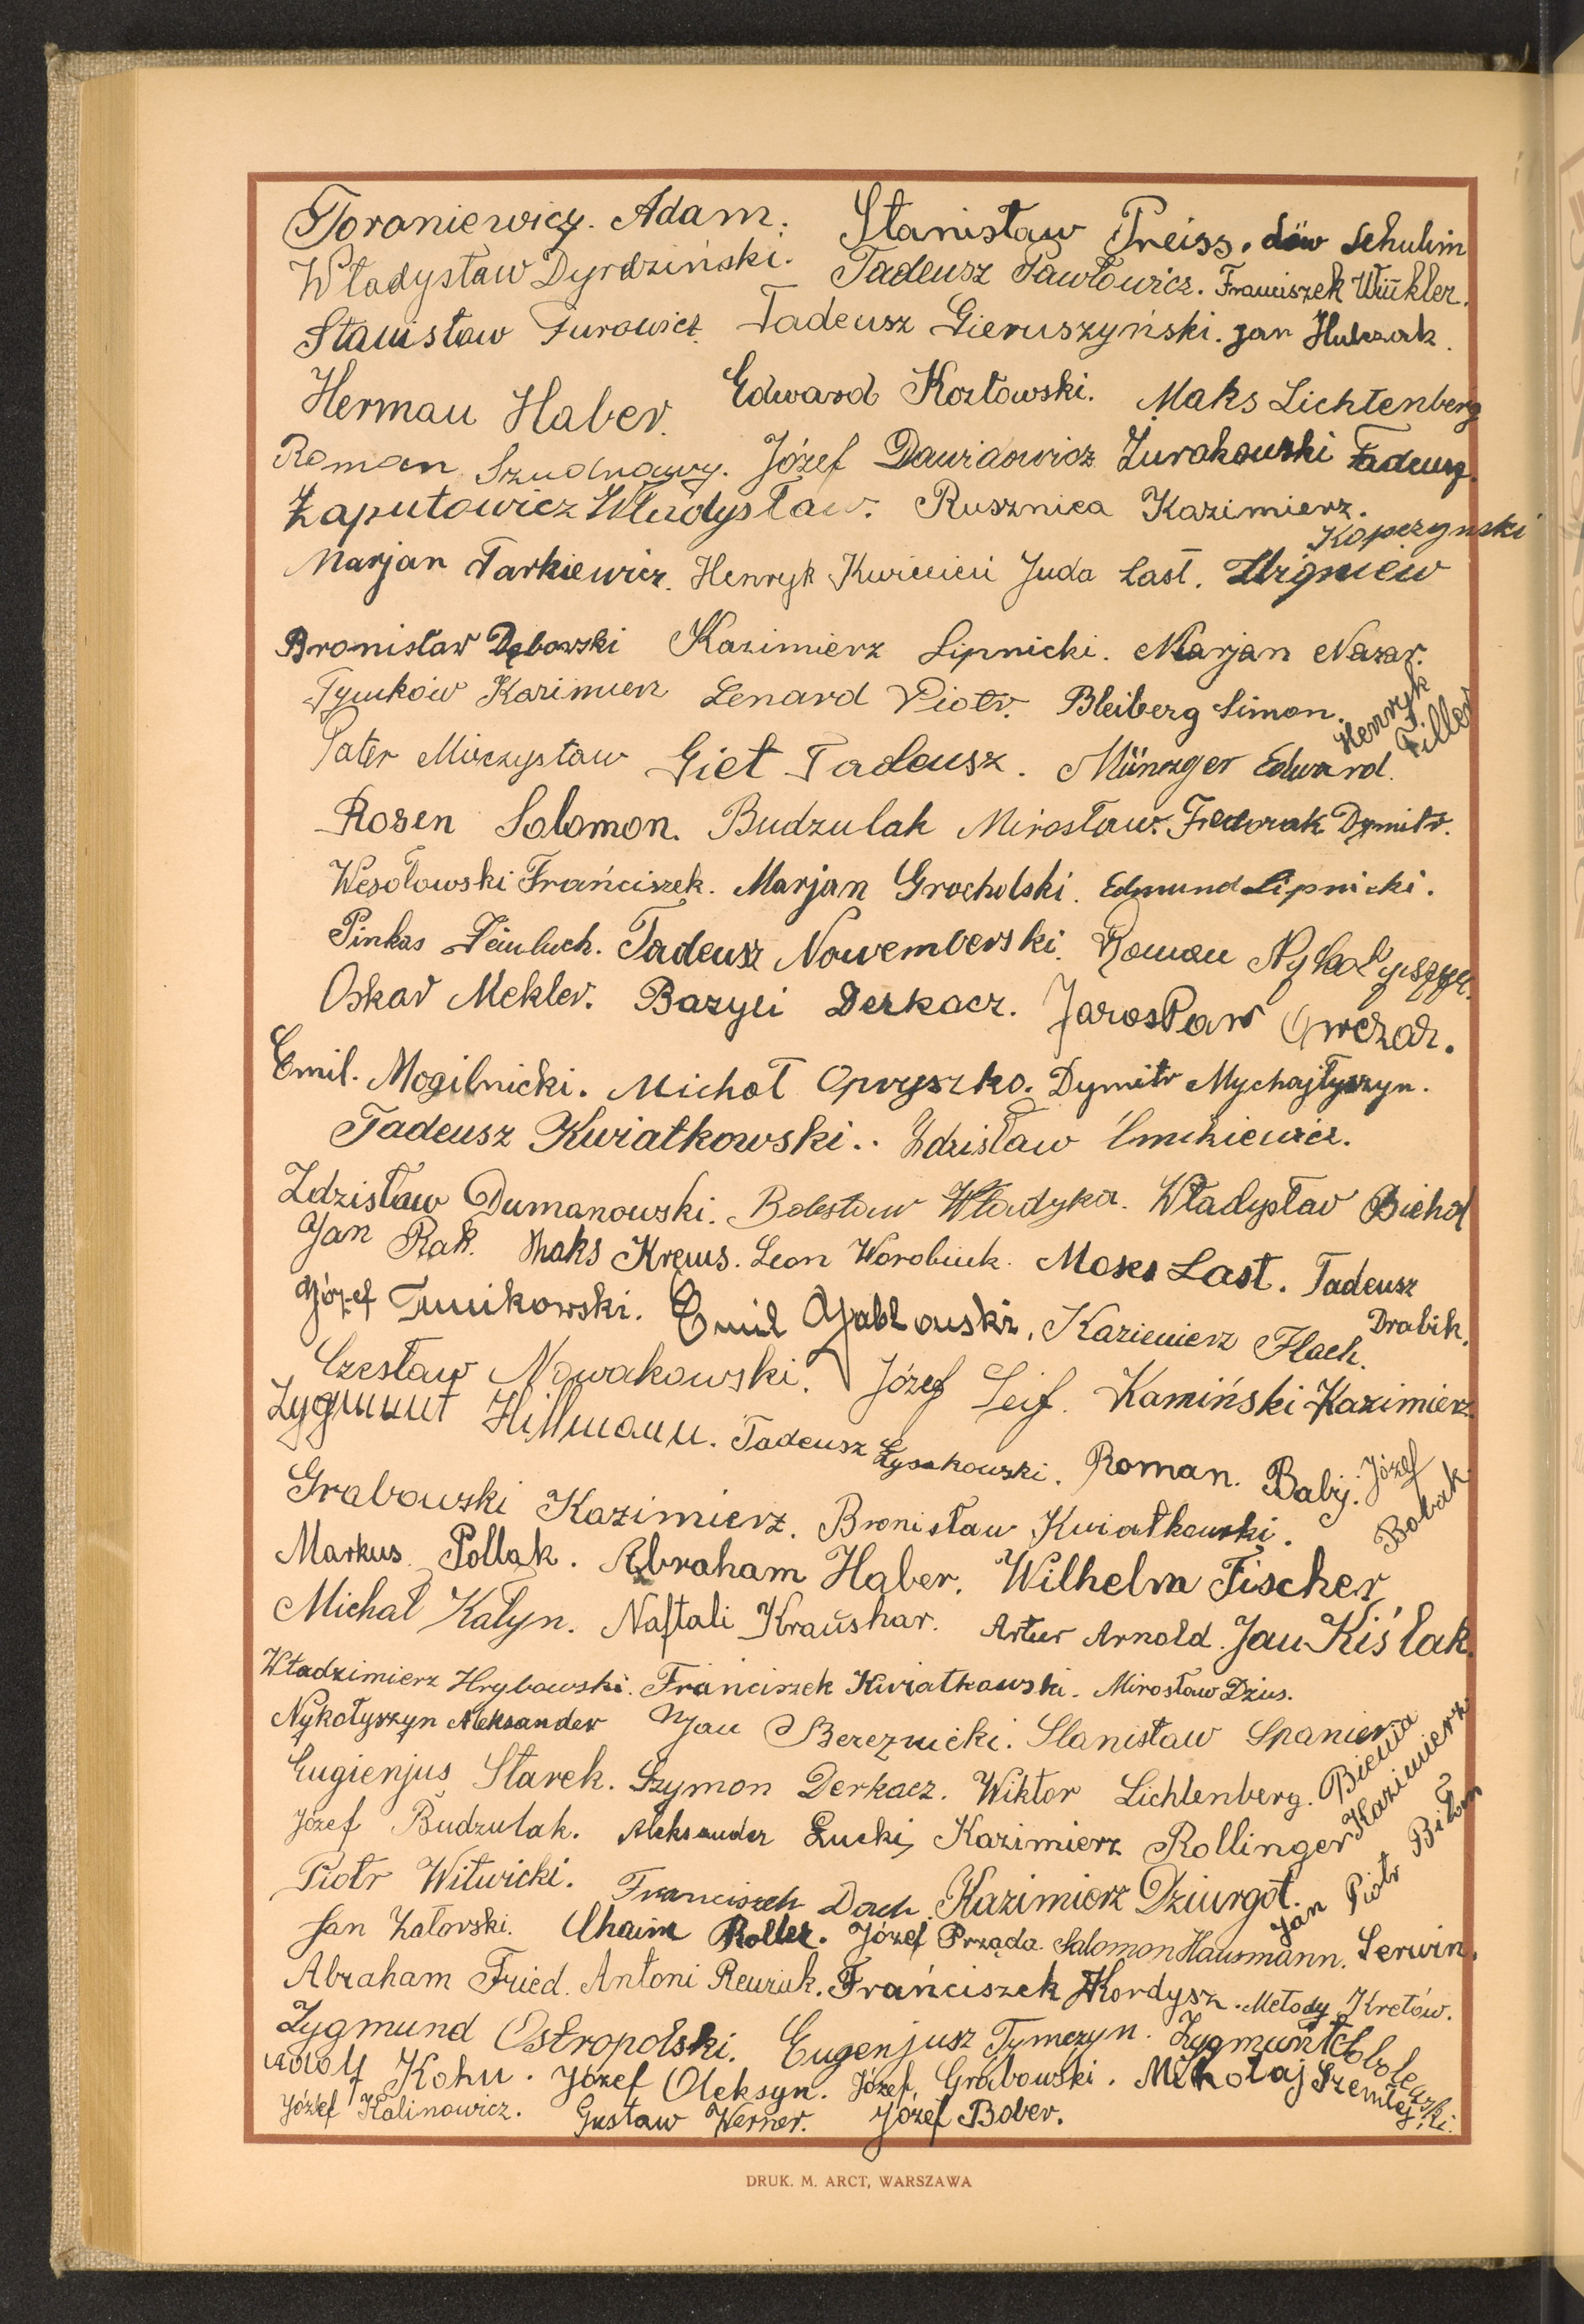 Toroniewicz. Adam. Stanisław Preiss. Löw Schulim
Władysław Dyrdziński. Tadeusz Pawłowicz. Franciszek Winkler.
Stanisław Jurowicz. Tadeusz Gieruszyński. Jan Hulczak.
Herman Haber. Edward Kozłowski. Maks Lichtenberg
Roman Józef Dawidowicz Żurakowski Tadeusz.
Zaputowicz Władysław. Rusznica Kazimierz.
Kopczynski
Marjan Tarkiewicz. Henryk Kwiecień Juda Last. Zbigniew
Bronisław Dębowski Kazimierz Lipnicki. Marjan Nazar.
Tymków Kazimierz Lenard Piotr. Bleiberg Simon. Henryk Filler
Pater Mieczysław Giet Tadeusz. Münzger Edward.
Rosen Solomon. Budzulak Mirosław. Fredorak Dymitr.
Wesołowski Frańciszek. Marjan Grocholski. Edmund Lipnicki.
Pinkas Tadeusz Nowemberski. Roman Nykołyszyn.
Oskar Mekler. Bazyli Derkacz. Jarosław Owczar.
Emil. Mogilnicki. Michał Opryszko. Dymitr Mychajłyszyn.
Tadeusz Kwiatkowski.. Zdzisław
Zdzisław Dumanowski. Bolesław Władyka. Władysław Biehol
Jan Rak. Maks Krems. Leon Worobiuk. Moses Last. Tadeusz Drabik.
Józef Tunikowski. Emil Jabłouski. Kazimierz Flach.
Czesław Nowakowski. Józef Leif. Kamiński Kazimierz.
Zygmunt Hillmann. Tadeusz Łysakowski. Roman. Babij. Józef Bobak
Grabowski Kazimierz. Bronisław Kwiatkowski.
Markus Pollak. Abraham Haber. Wilhelm Fischer,
Michał Kałyn. Naftali Kraushar. Artur Arnold. Jan Kiślak.
Władzimierz Hrybowski. Frańciszek Kwiatkowski. Mirosław Dzius.
Nykołyszyn Aleksander Jan Bereznicki. Stanisław Spanier.
Eugienjus Starek. Szymon Derkacz. Wiktor Lichtenberg. Bienia Kazimierz
Józef Budzulak. Aleksander Łucki, Kazimierz Rollinger
Piotr Witwicki. Franciszek Dach. Kazimierz Dziurgot. Jan Piotr Biłan
Jan Załorski. Chaim Roller. Józef Prząda. Salomon Hausmann. Serwin.
Abraham Fried. Antoni Reuziuk. Frańciszek Kordysz. Metody Kretów.
Zygmund Ostropolski. Eugenjusz Tymczyn. Zygmunt Cobolewski.
Adolf Kohn. Józef Oleksyn. Józef Grabowski. Mikołaj Szemłej.
Józef Kalinowicz. Gustaw Werner. Józef Bober.
DRUK. M. ARCT, WARSZAWA